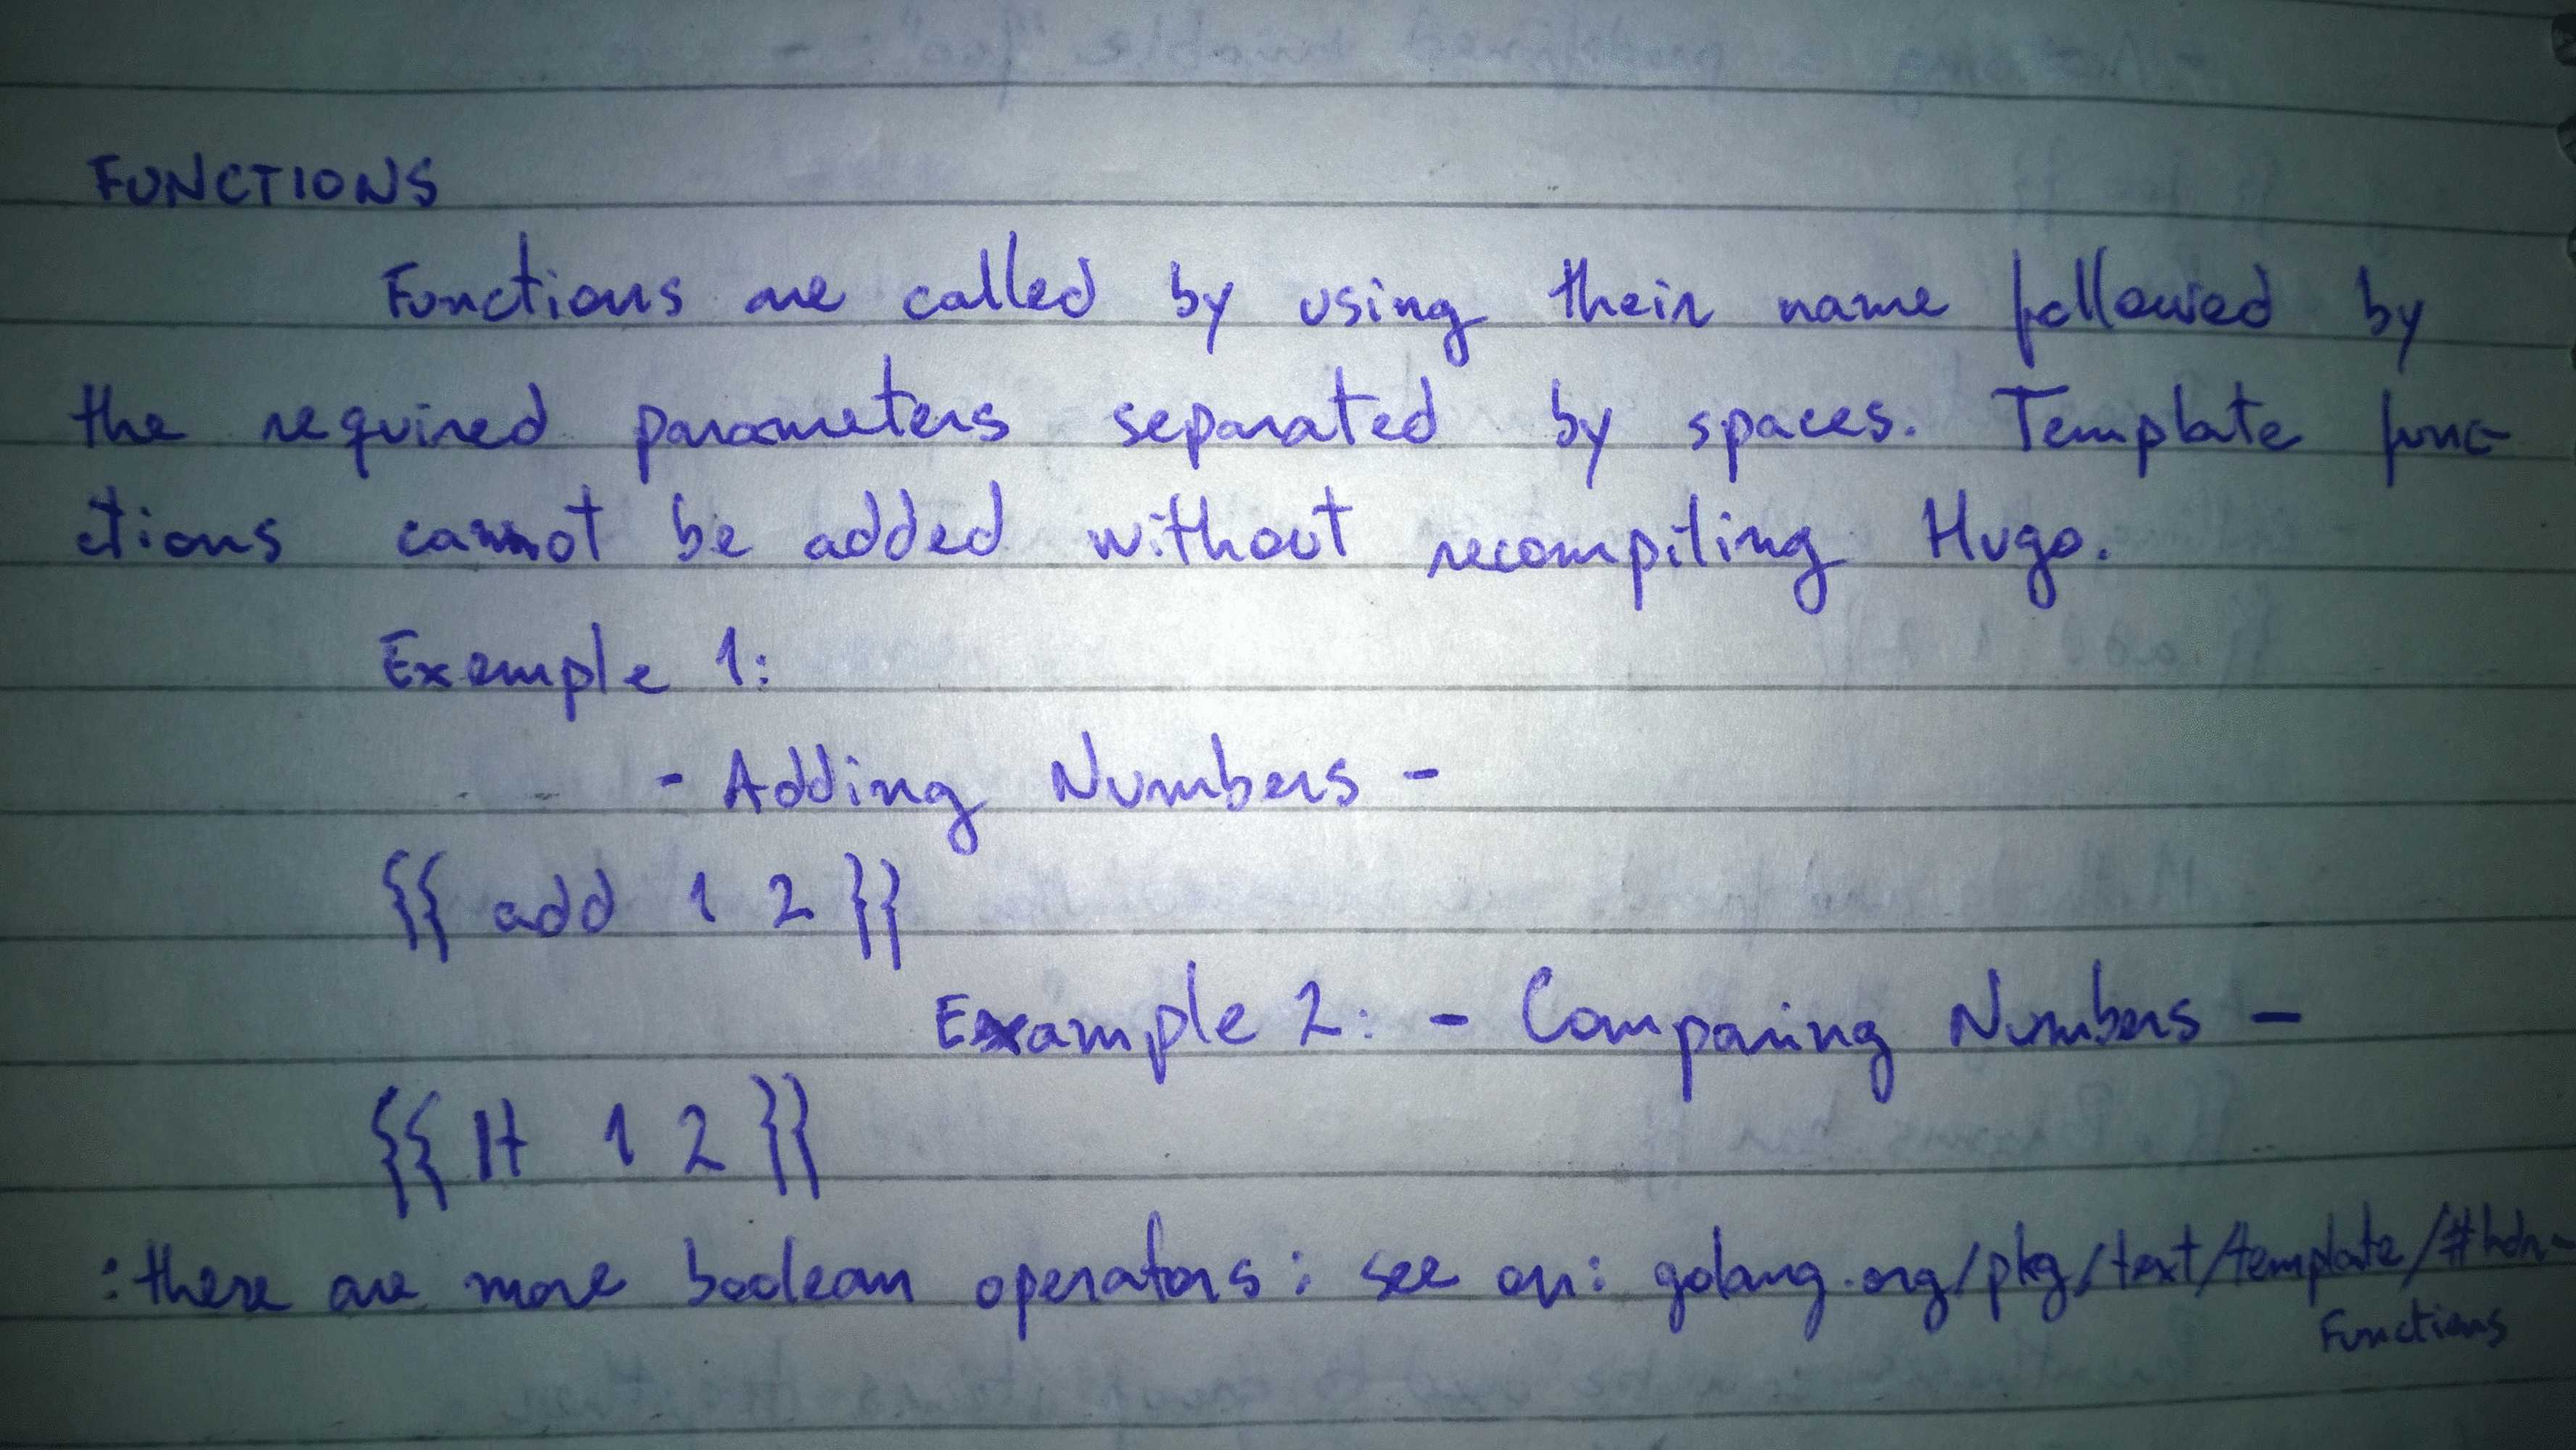 FUNCTIONS
Functions are called by using their name followed by
the required parameters separated by spaces. Template func-
ctions cannot be added without recompiling Hugo.
Example 1:
- Adding Numbers -
{{ add 1 2 }}
Example 2: - Comparing Numbers -
{{ lt 1 2 }}
: there are more boolean operators; see on: golang.org/pkg/text/template/#hdr-
Functions